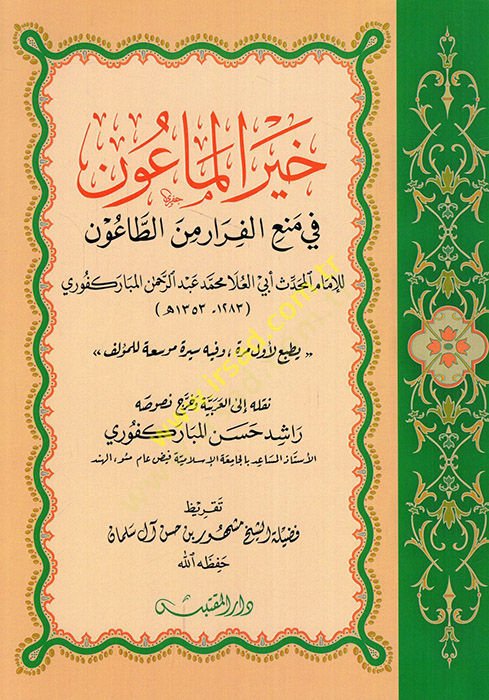 خَيْرُ الْمَاعُون
فِي مَنْعِ الْفِرَارِ مِنَ الطَّاعُوْن
للإمام المحدّث أبي العُلا محمّد عَبد الرّحمن المبَاركفُوري
(١٢٨٣ - ١٣٥٣ هـ)
« يطبع لأول مرة ، وفيه سيرة موسعة للمؤلف »
نقله إلى العَربيّة وخرّج نصوصه
رَاشِد حَسَن المبَاركفُوري
الأستاذ المسَاعِد بالجَامِعَة الإسلاميّة فيض عَام مئو، الهند
تَقريظ
فضيلة الشيخ مشهور بن حسن آل سلمان
حَفِظَه الله
دار المقتبس
www.irsad.com.tr